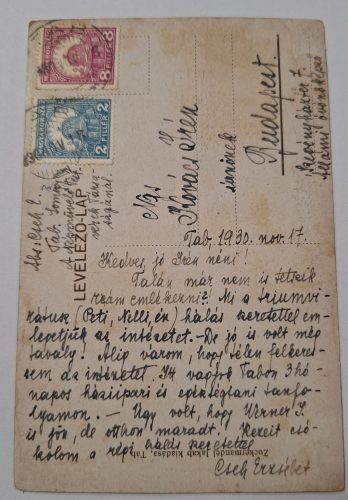 MAGYARORSZÁG
8 FILLÉR 8
MAGYARORSZÁG
2 FILLÉR 2
LEVELEZŐ-LAP
Abs: Cseh E.
Tab, Somogy
A Népművelési
ságánál.
Ngs
Kovács Irén
úrnőnek
Budapest
Tab, 1930. nov. 17.
Kedves, jó Irén néni!
Talán már nem is tetszik
rám emlékezni? Mi a triumvi-
rátus (Peti, Nelli, én) hálás szeretettel em-
legetjük az intézetet. - De jó is volt még
tavaly! Alig várom, hogy télen felkeres-
sem az intézetet. Itt vagyok Tabon 3 hó-
napos háziipari és egészségtani tanfo-
lyamon. - Úgy volt, hogy Werner S.
is jön, de otthon maradt. Kezeit csó-
kolom a régi hálás szeretettel
Cseh Erzsébet
Zuckermandel Jakab kiadása, Tab.